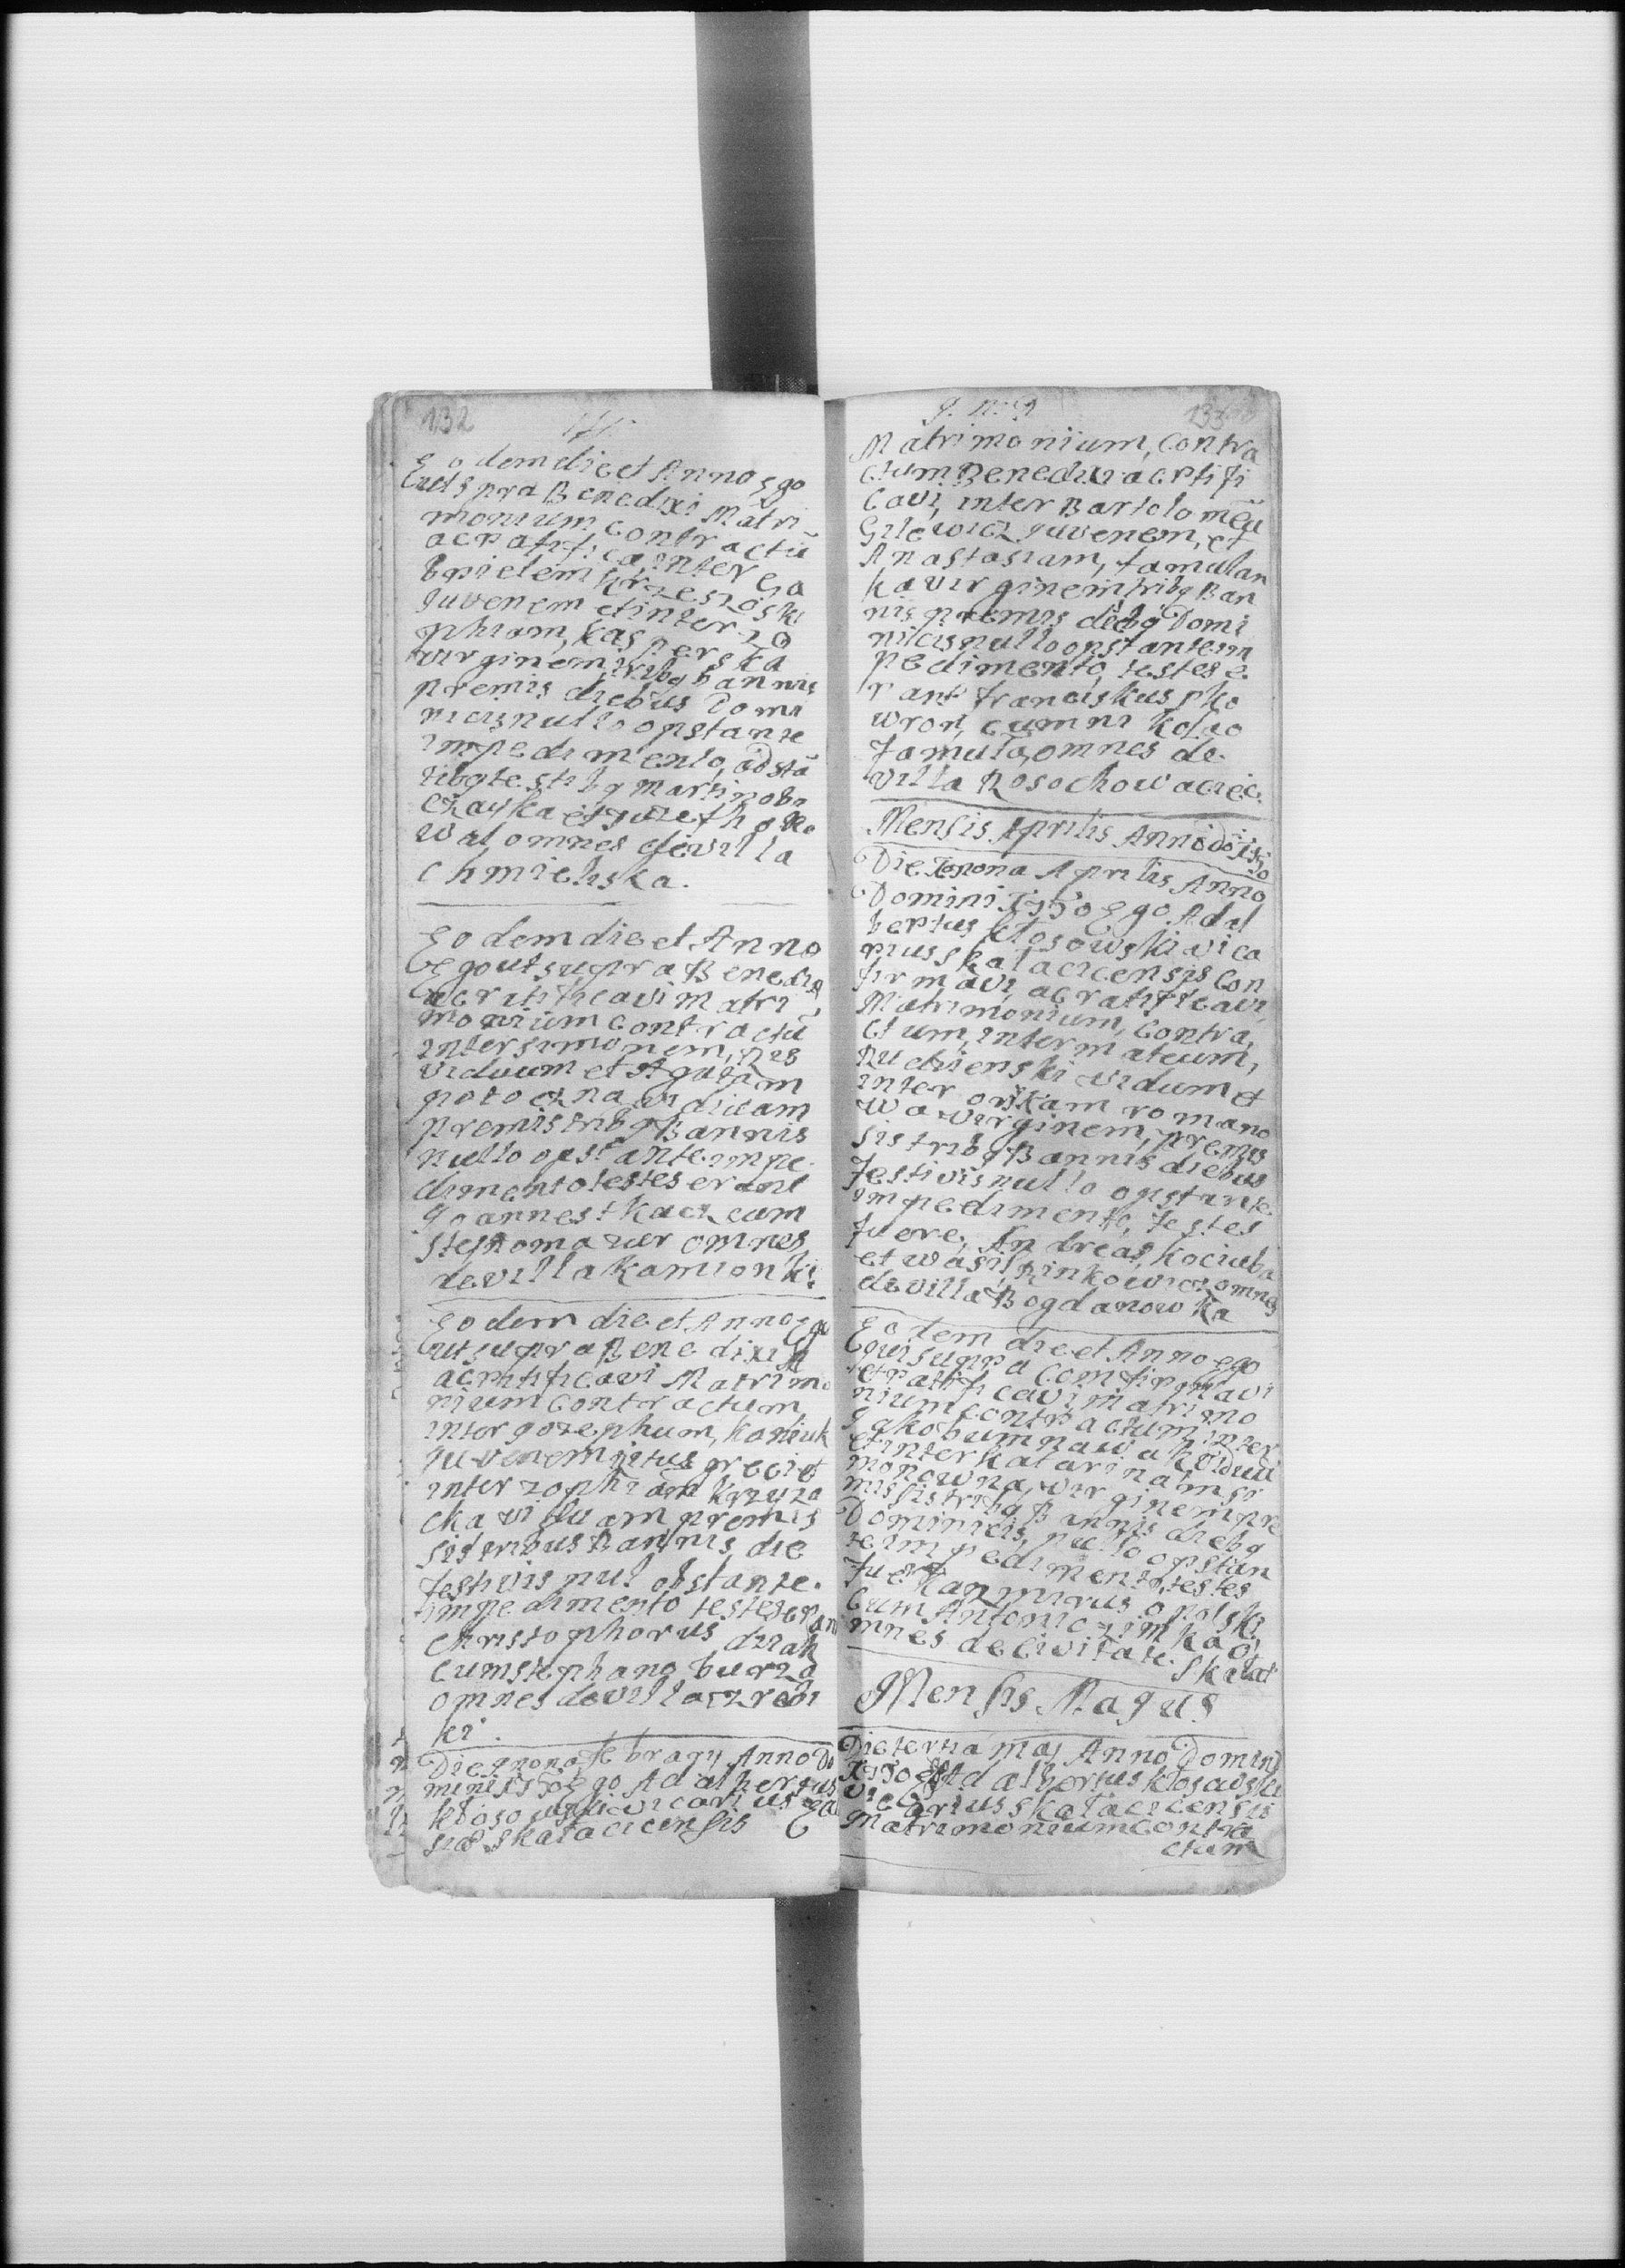 132
Eodem die et Anno Ego
ut supra Benedixi Matri
monium contractū
ac ratifica, inter Ga
brielem
Juvenem et inter Zo
phiam, Kasperska
virginem, tribq Bannis
premis diebus Domi
nicis nullo opstante
impedimento, adstā
tibq testibq
et Jozeth
omnes de villa
Chmieliska.
Eodem die et Anno
Ego ut supra Benedixi
ac ritificavi Matri
monium contractū
inter simonem,
viduum et Agatam
potoczna viduam
premis tribq Bannis
nullo opstante impe
dimento testes erant
Joannes tkacz cum
omnes
de villa Kamionki
Eodem die et Anno Ego
ut supra Benedixi
ac rtificavi Matrimo
nium contractum
inter Jozephum, Koniuk
Juvenem ritus greci et
inter zophiam Krzyza
cka viduam premis
sis tribus Bannis, die
festivis nul obstante.
impedimento testes erant
Christophorus
cum stephano burza
omnes de villa
ki.
Die nona, febrary Anno Do
mini 1750 Ego Adalbertus
Kłosowski vicarius
skałacicensis
133
Matrimonium, Contra
ctum Benedixi ac rtifi
cavi, inter Bartolomeū
Gilewicz juvenem, et
Anastasiam, famulan
ka virginem, tribq Ban
nis premis diebq Domi
nicis nullo opstante im
pedimento, testes e
rant franciskus
cum
famula, omnes de
villa Rosochowaciec
Mensis Aprilis Anno Dōi 1750
Die nona Aprilis Anno
Domini 1750 Ego Adal
bertus Kłosowski vica
rius skałacicensis con
firmavi ac ratificavi,
Matrimonium, Contra,
ctum, inter mateum,
Rudzienski vidum et
inter oryskam romano
wa virginem, premis
sis tribq Bannis diebus
festivis nullo opstante.
impedimento, testes
fuere, Andreas, Kociuba
et wasil, Rinkowicz omnes
de villa Bogdanowka
Eodem die et Anno ego
qui supra Comfirmavi
et ratificavi matrimo
nium contractum inter
Jakobum viduū
et inter katarinam si
monowna, virginem pre
missis tribq Bannis diebq
Dominicis, nullo opstan
te impedimento, testes
fuer Kazmirus opalski
cum Antonio zimka o,
mnes de civitate. Skałat
Mensis Majus
Die tertia maj Anno Domini
1750 Ego Adalbertus Kłosowski
vicarius skałacicensis
matrimonium contra
ctum